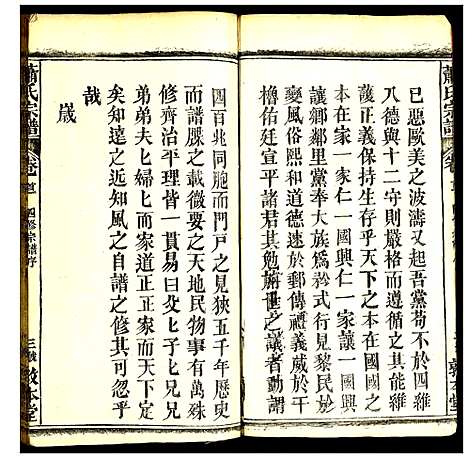 蕭氏宗譜
已惡歐美之波濤又起吾黨苟不於四維
八德與十二守則嚴格而遵循之其能維
護正義保持生存乎天下之本在國國之
本在家一家仁一國興仁一家讓一國興
讓鄉鄰里黨奉大族為矜式行見黎民於
變風俗熙和道義速於郵傳禮義威於干
櫓佑廷宣平諸君勉旃世之議者動謂
四百兆同胞而門戶之見狹五千年歷史
而譜牒之載微要之天地民物事有萬殊
修齊治平理皆一貫易曰父父子子兄兄
弟弟夫夫婦婦而家道正正家而天下定
矣知遠之近知風之自譜之修其可忽乎
哉
歲
蕭氏宗譜
四修宗譜序
三
敦本堂